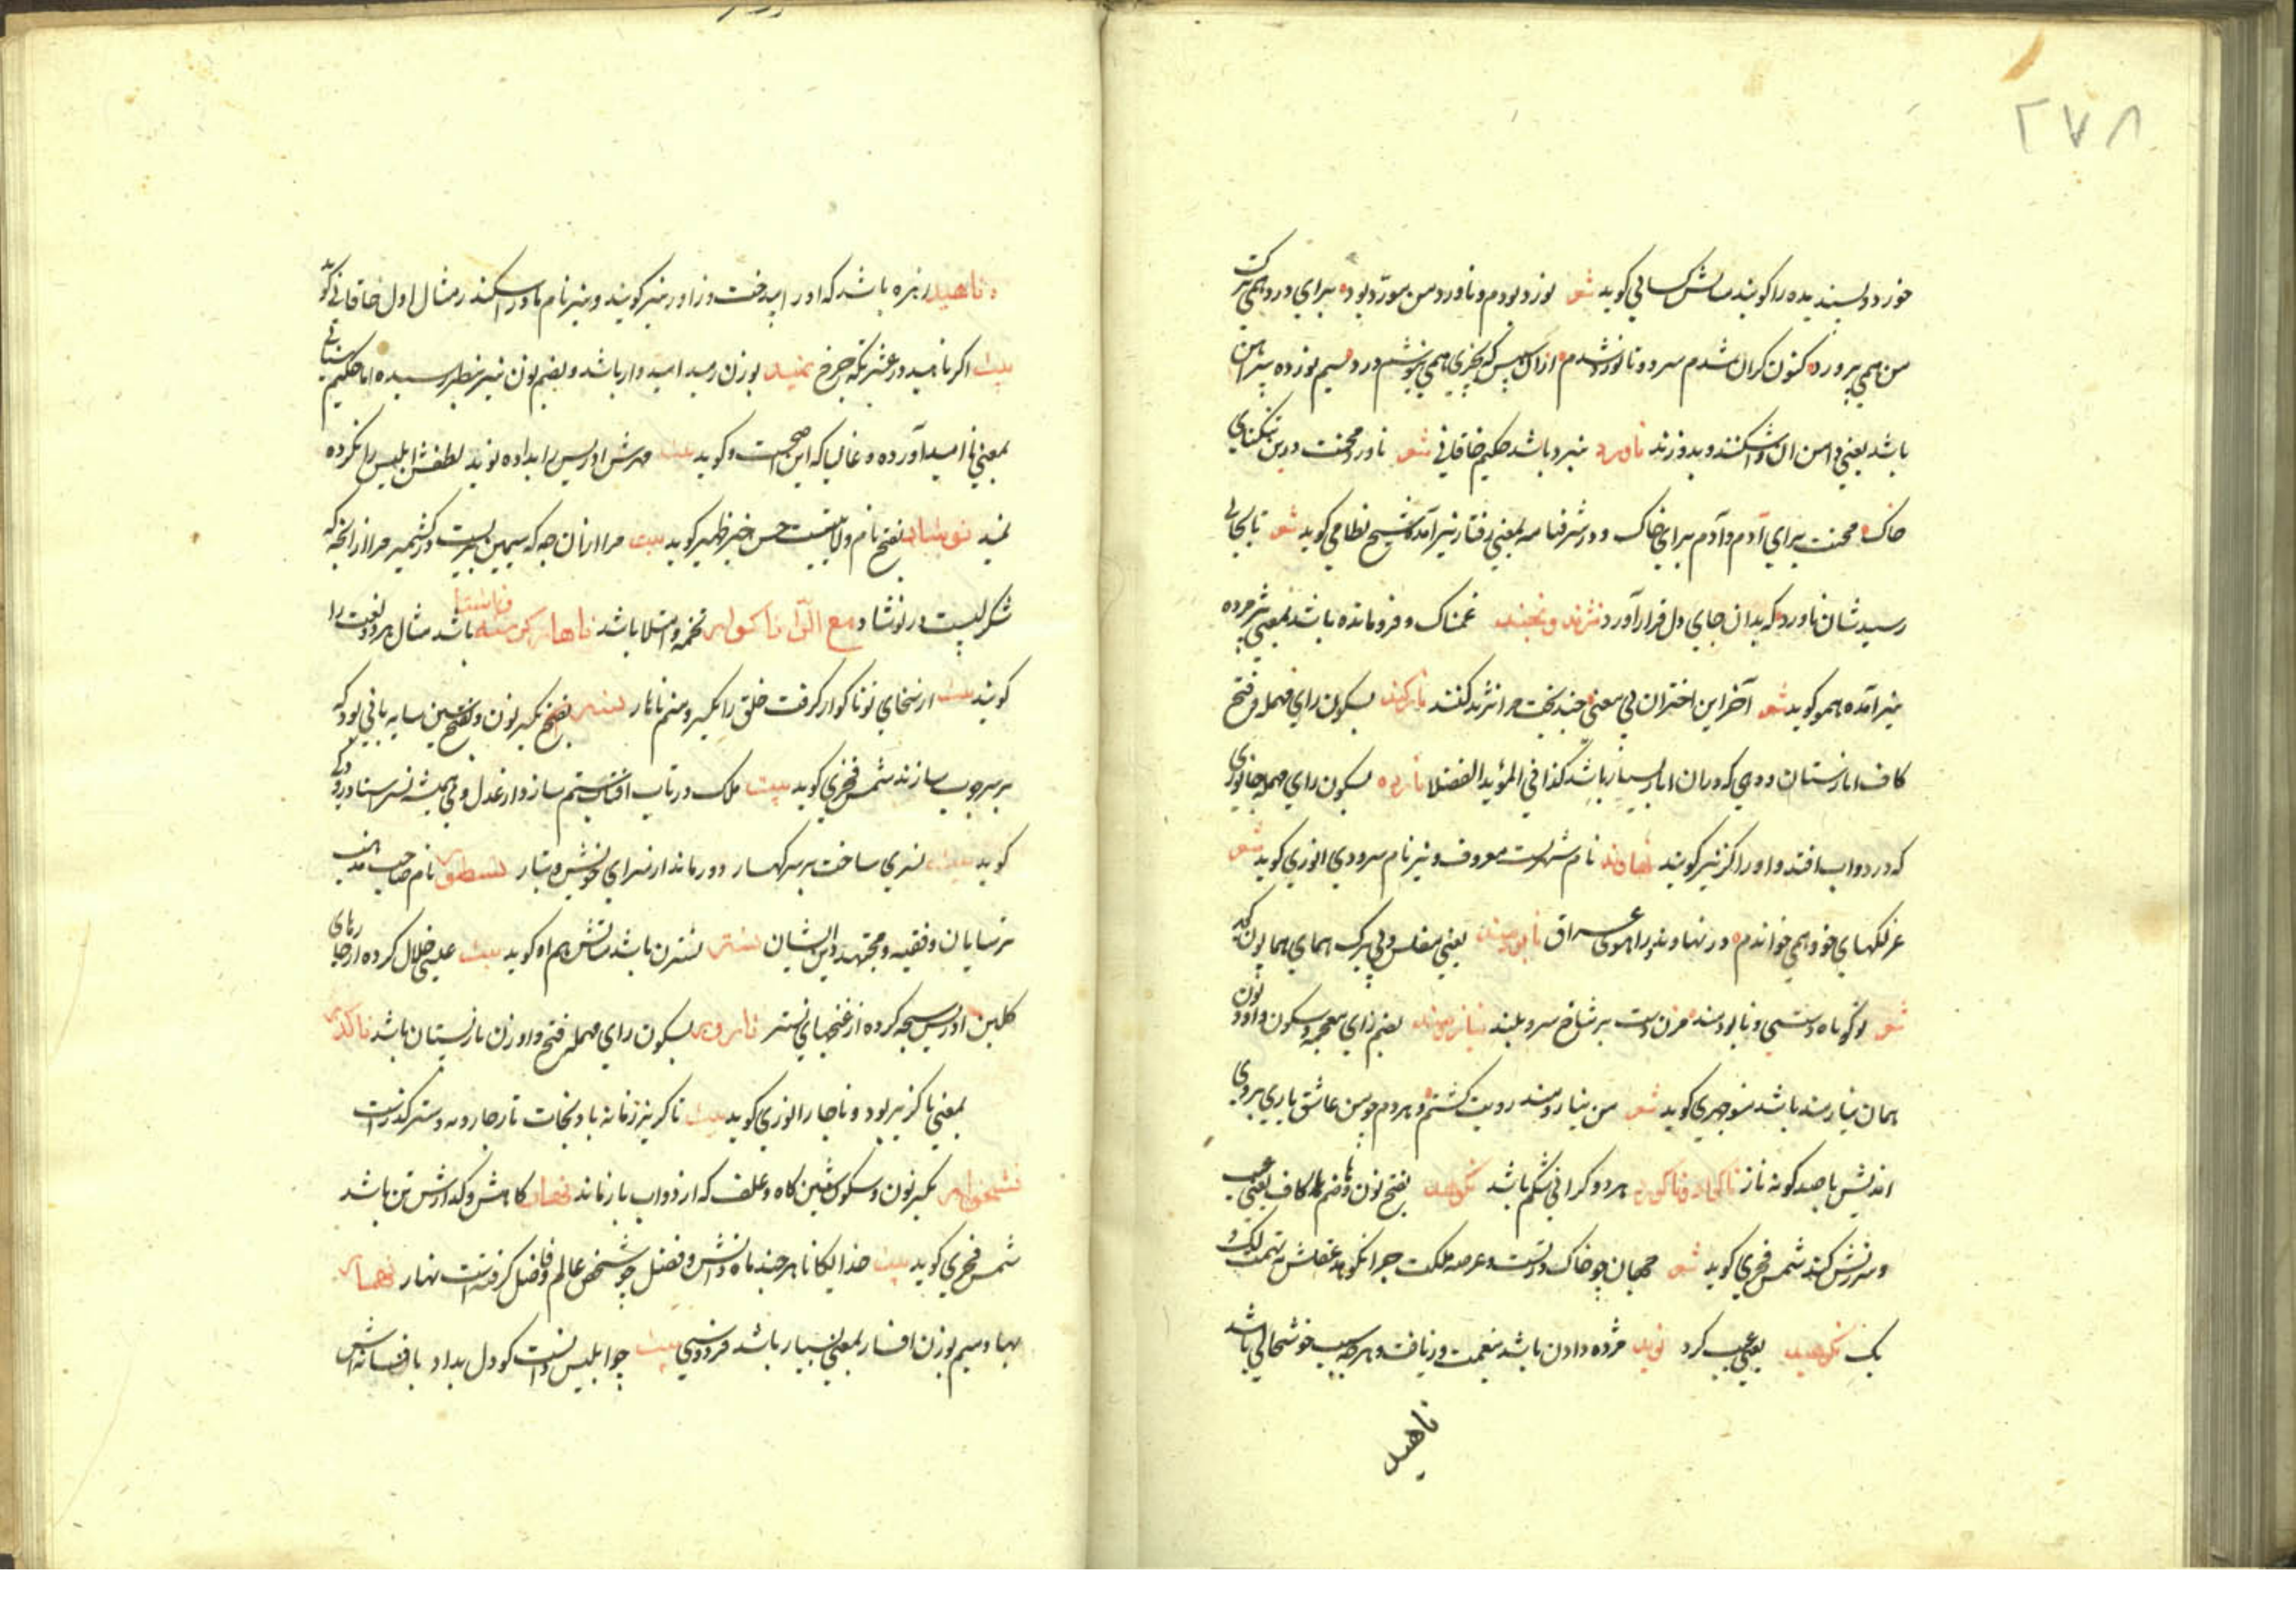 ۲۷۸
خورد و پسندیده را کویند مثالش کسائی کوید شعر نورد بودم و ناورد من مورد بود برای ورد همی ترک
من همی پرورد کنون کران شدم سرد و نانورد شدم ازان سپس که بخیری همی بپوشم ورد نسیم نورده پیراهن
باشد یعنی دامن آن را شکنند و بدوزند ناورد نبرد باشد حکیم خاقانی شعر ناورد محنت درین تنکنای
خاک محنت برای آدم و آدم برای خاک و در شرفنامه بمعنی رفتار نیز آمده شیخ نظامی کوید شعر تا بجائی
رسید شان ناورد که بدان جای دل قرار آورد نژند و نجند غمناک و فرومانده باشد بمعنی پژمرده
نیز آمده همو کوید شعر آخر این اختران بی معنی چند بخت مرا نژند کنند نارکند بسکون رای مهمله و فتح
کاف انارستان و دهی که دران انار بسیار باشد کذا فی المؤید الفضلا نارده بسکون رای مهمله جانوری
که در دواب افتد و او را کنه نیز کویند نهاوند نام شهریست معروف و نیز نام سرودی انوری کوید شعر
غزلکهای خود همی خواندم در نهاوند و راهوی عراق نابودمند یعنی مفلس و بی برک همای همایون کوید
شعر تو کوتاه دستی و نابودمند مزن دست بر شاخ سرو بلند نیازومند بضم زای معجمه و سکون واو و نون
همان نیازمند باشد منوچهری کوید شعر من نیازومند رویت کشتم و هر دم چو من عاشق یاری بروی
اندیش با صد کونه ناز ناکهار و ناکوارد هر دو کرانی شکم باشد نکوهید بفتح نون و ضم کاف یعنی عیب
و سرزنش کند شمس فخری کوید شعر جهان چو خاک در تست و عرصه ملکت چرا نکوهد عقلش به تهمت لک و
پک نکوهید یعنی عیب کرد نوید مژده دادن باشد بنعمت و زیافت و هرچه سبب خوشحالی باشد
ناهید
ناهید زهره باشد که او را بیدخت و زاور نیز کویند و نیز نام مادر اسکندر مثال اول خاقانی کوید
بیت اکر ناهید در عشرتکه چرخ نمید بوزن رمید امیدوار باشد و بضم نون نیز بنظر رسیده اما حکیم سنائی
بمعنی ناامید آورده و غالبا که این اصحست و کوید بیت مهرش ادریس را بداده نوید لطفش ابلیس را نکرده
نمید نوشاد بفتح نام ولایتیست حسن خیز ظهیر کوید بیت مرا ازان چه که سیمین بریست در کشمیر مرا ازانچه که
شکر لبیست در نوشاد مع الرا ناکوار تخمه و امتلا باشد ناهار کرسنه و ناشتا باشد مثال هر دو لغت را
کویند بیت از سخای تو ناکوار کرفت خلق را یکسر و منم ناهار نسر بفتح یکسر نون و بفتح سین سایه بانی بود که
بر سر چوب سازند شمس فخری کوید بیت ملک در تاب افتاب ستم سازد از عدل وی همیشه نسر استاد رودکی
کوید بیت نسری ساخت بر سر کهسار دور ماند از سرای خویش و تبار نسطور نام صاحب مذهب
ترسایان و فقیه و مجتهد دین ایشان نستر نسترن باشد مثالش هم او کوید بیت عیسی خلال کرده از خارهای
کلبن ادریس سبحه کرده از غنچهای نستر نارور بسکون رای مهمله و فتح واو زن نارپستان باشد ناکذر
بمعنی ناکزیر بود و ناچار انوری کوید بیت ناکریز زمانه باد نجات تا ز چار و نه و سه نکذرست
نشخوار بکسر نون و سکون شین کاه و علف که از دواب باز ماند نهار کاهش و کدازش تن باشد
شمس فخری کوید بیت خدایکانا هر چند ماه دانش و فضل چو شخص عالم و فاضل کرفته است نهار نهمار
بها و میم بوزن افسار بمعنی بسیار باشد فردوسی بیت چو ابلیس دانست کو دل بداد بافسانه‌اش